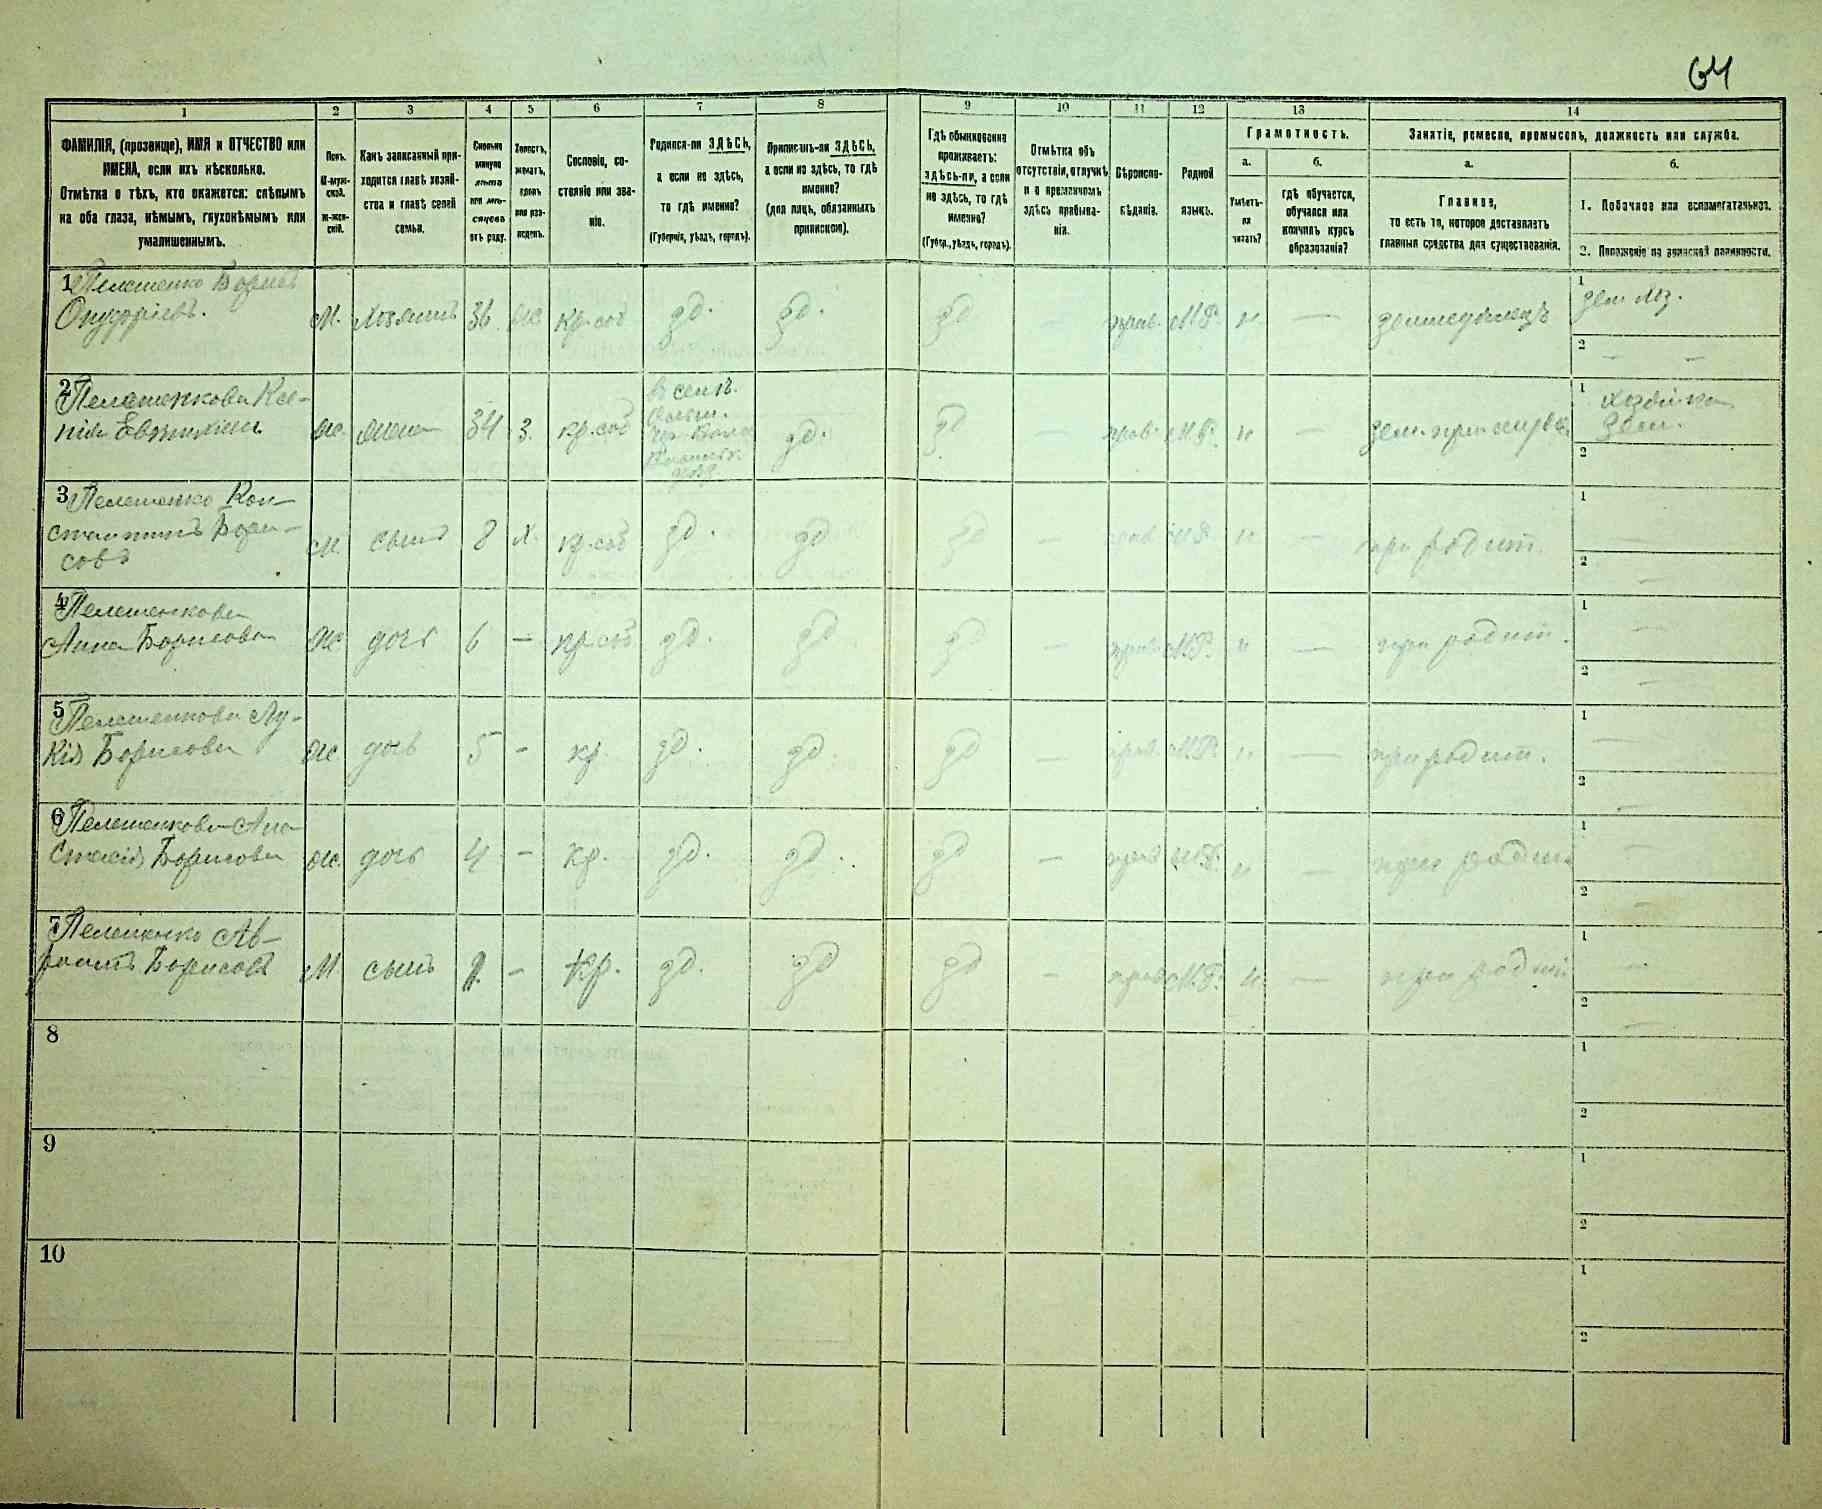 64
1 2 3 4 5 6 7 8 9 10 11 12 13 14
ФАМИЛІЯ, (прозвище), ИМЯ и ОТЧЕСТВО или
ИМЕНА, если ихъ нѣсколько.
Отмѣтка о тѣхъ, кто окажется: слѣпымъ
на оба глаза, нѣмымъ, глухонѣмымъ или
умалишеннымъ.
Полъ.
М-муж-
ской.
ж-жен-
скій.
Какъ записанный при-
ходится главѣ хозяй-
ства и главѣ своей
семьи.
Сколько
минуло
лѣтъ
или мѣ-
сяцевъ
отъ роду.
Холостъ,
женатъ,
вдовъ
или раз-
веденъ.
Сословіе, со-
стояніе или зва-
ніе.
Родился-ли ЗДѢСЬ,
а если не здѣсь,
то гдѣ именно?
(Губернія, уѣздъ, городъ).
Приписанъ-ли ЗДѢСЬ,
а если не здѣсь, то гдѣ
именно?
(для лицъ, обязанныхъ
припискою).
Гдѣ обыкновенно
проживаетъ:
здѣсь-ли, а если
не здѣсь, то гдѣ
именно?
(Губер., уѣздъ, городъ).
Отмѣтка объ
отсутствіи, отлучкѣ
и о временномъ
здѣсь пребыва-
ніи.
Вѣроиспо-
вѣданіе.
Родной
языкъ.
Грамотность.
а.
Умѣетъ-
ли
читать?
б.
гдѣ обучается,
обучался или
кончилъ курсъ
образованія?
Занятіе, ремесло, промыселъ, должность или служба.
а.
Главное,
то есть то, которое доставляетъ
главныя средства для существованія.
б.
1. Побочное или вспомогательное.
2. Положеніе по воинской повинности.
1 Пелешенко Борисъ
Онуфріевъ. М. хозяинъ 36 ж кр.соб зд. зд. зд — прав. М.Р. н — земледѣлецъ
1 зем. хоз.
2 — —
2 Пелешенкова Ксе-
нія ж. жена 34 з. кр.соб зд. зд — прав. М.Р. н —
1 хозяйка
зем.
2
3 Пелешенко Кон-
стантинъ Бори-
совъ м. сынъ 8 х. кр.соб зд. зд зд — прав. М.Р. н — при родит.
1 —
2 —
4 Пелешенкова
Анна Борисова ж дочь 6 — кр.соб зд. зд зд — прав. М.Р. н — при родит.
1 —
2 —
5 Пелешенкова Лу-
кія Борисова ж дочь 5 — кр. зд. зд зд — прав. М.Р. н — при родит.
1 —
2 —
6 Пелешенкова Ана-
стасія Борисова ж. дочь 4 — кр. зд. зд. зд — прав. М.Р. н — при родит
1 —
2 —
7 Пелешенко Ав-
раамъ Борисовъ М сынъ — кр. зд. зд зд — прав М.Р. н. — при родит
1 —
2 —
8
1
2
9
1
2
10
1
2